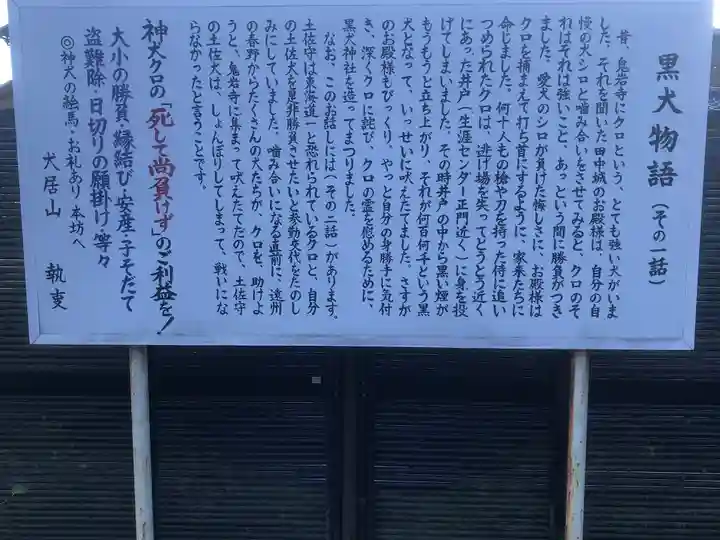 黒犬物語（その一話）
昔、鬼岩寺にクロという、とても強い犬がいま
した。それを聞いた田中城のお殿様は、自分の自
慢の犬シロと噛み合いをさせてみると、クロのそ
れはそれは強いこと、あっという間に勝負がつき
ました。愛犬のシロが負けた悔しさに、お殿様は
クロを捕まえて打ち首にするように、家来たちに
命じました。何十人もの槍や刀を持った侍に追い
つめられたクロは、逃げ場を失ってとうとう近く
にあった井戸（生涯センター正門近く）に身を投
げてしまいました。その時井戸の中から黒い煙が
もうもうと立ち上がり、それが何百何千という黒
犬となって、いっせいに吠えたてました。さすが
のお殿様もびっくり、やっと自分の身勝手に気付
き、深くクロに詫び、クロの霊を慰めるために、
黒犬神社を造ってまつりました。
なお、このお話しには（その二話）があります。
土佐守は東海道一と恐れられているクロと、自分
の土佐犬を是非勝負させたいと参勤交代をたのし
みにしていました。噛み合いになる直前に、遠州
の春野からたくさんの犬たちが、クロを、助けよ
うと、鬼岩寺に集まって吠えたてたので、土佐守
の土佐犬は、しょんぼりしてしまって、戦いにな
らなかったと言うことです。
神犬クロの「死して尚負けず」のご利益を！
大小の勝負・縁結び・安産・子そだて
盗難除・日切りの願掛け・等々
◎神犬の絵馬・お札あり 本坊へ
犬居山 執事